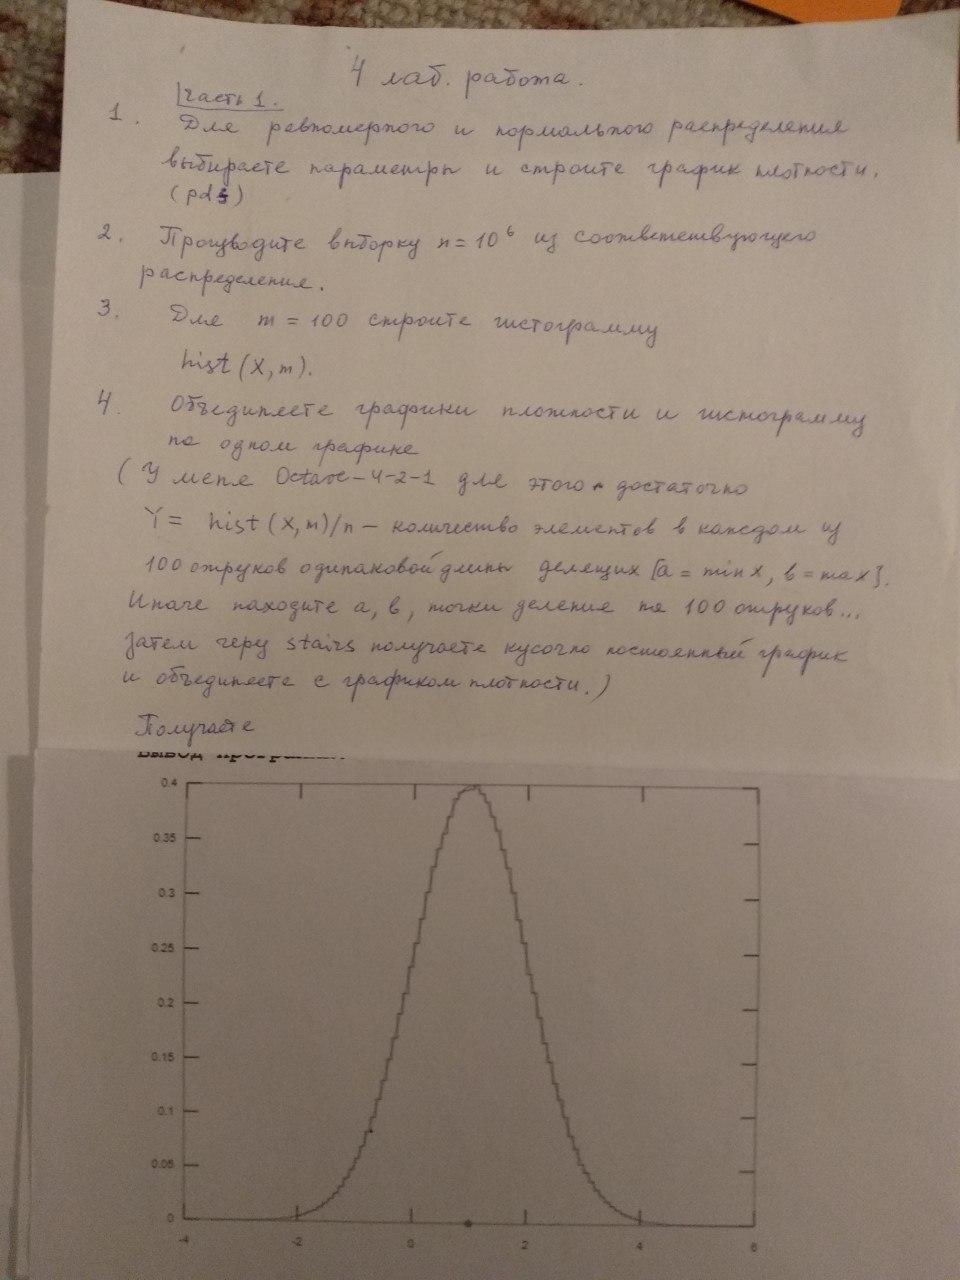 4 лаб. работа.
Часть 1.
1. Для равномерного и нормального распределения
выбираете параметры и строите график плотности.
(pdf)
2. Производите выборку n = 10⁶ из соответствующего
распределения.
3. Для m = 100 строите гистограмму
hist (X, m).
4. Объединяете графики плотности и гистограмму
на одном графике
(У меня Octave-4-2-1 для этого достаточно
Y = hist (X, m)/n – количество элементов в каждом из
100 отрезков одинаковой длины делящих [a = min x, b = max].
Иначе находите a, b, точки деления на 100 отрезков...
Затем через stairs получаете кусочно постоянный график
и объединяете с графиком плотности.)
Получаете
0.4
0.35
0.3
0.25
0.2
0.15
0.1
0.05
0
-4 -2 0 2 4 6